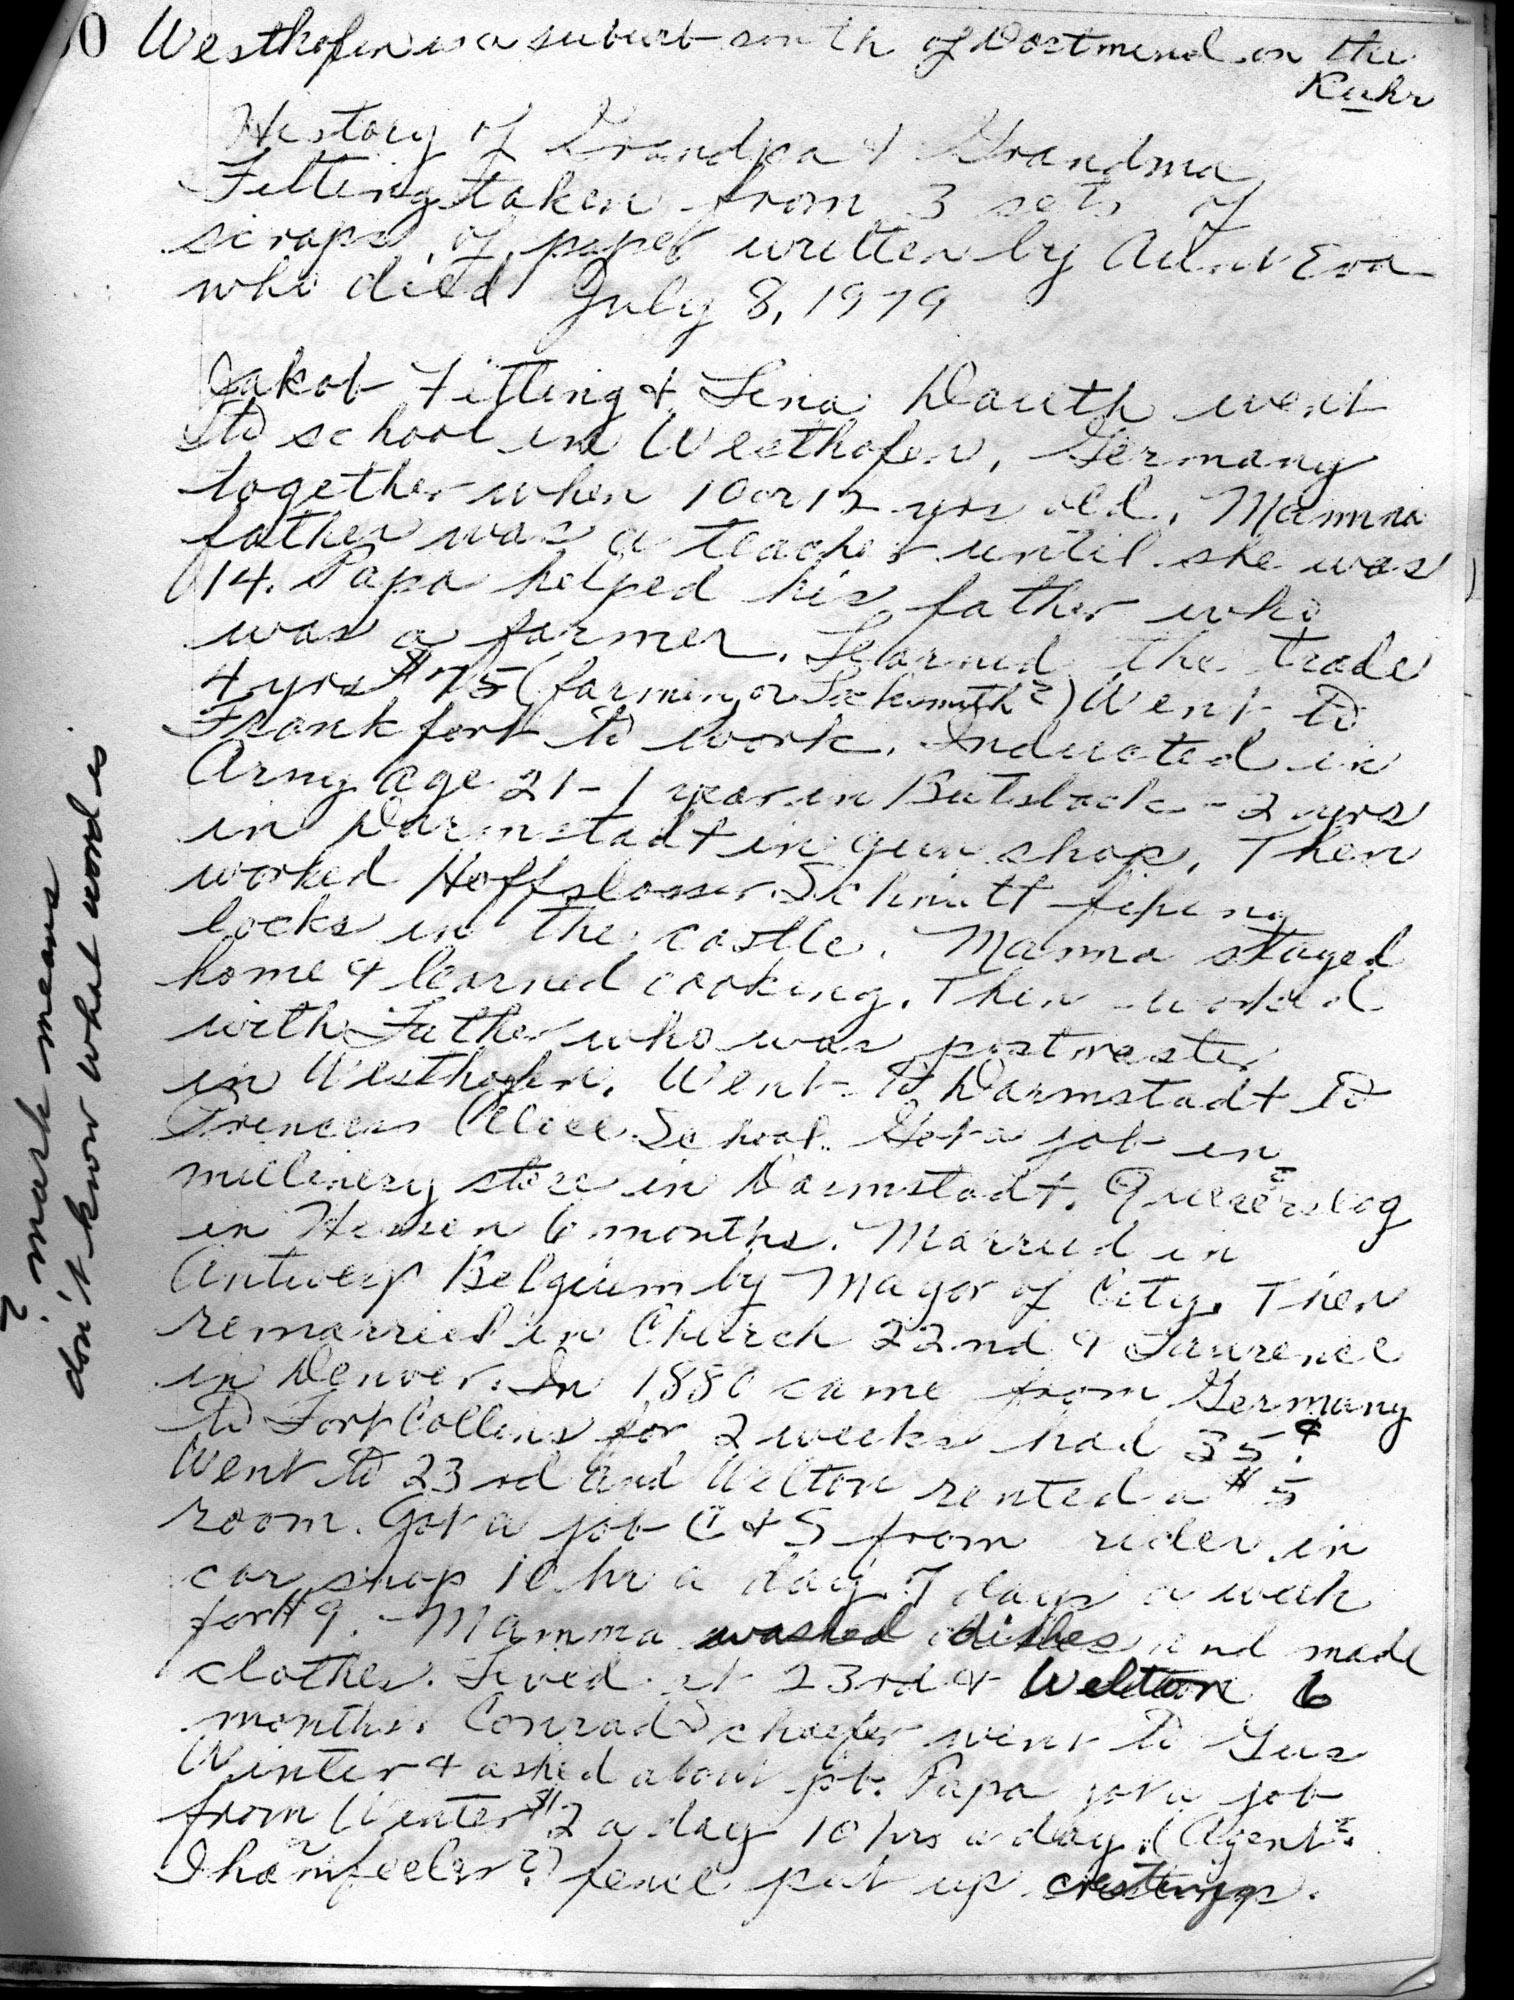 Westhofen is a suburb south of Dortmund on the
Ruhr
History of Grandpa & Grandma
Fitting taken from 3 sets of
scraps of paper written by Aunt Eva
who died July 8, 1979
Jakob Fitting & Lina Dauth went
to school in Westhofen, Germany
together when 10 or 12 yrs old. Mamma
father was a teacher until she was
14. Papa helped his father who
was a farmer. Learned the trade
4 yrs $75 (farming or Locksmith?) Went to
Frankfort to work. Inducted in
Army age 21 - 1 year in Butsback - 2 yrs
in Darmstadt in gun shop. Then
worked Hoffslosser Schmitt fixing
locks in the castle. Mamma stayed
home & learned cooking. Then worked
with Father who was postmaster
in Westhofen. Went to Darmstadt to
Princess Alice School. Got a job in
millinery store in Darmstadt.
in Hessen 6 months. Married in
Antwerp Belgium by Mayor of City. Then
remarried in Church 22nd & Lawrence
in Denver. In 1880 came from Germany
to Fort Collins for 2 weeks had 35¢.
Went to 23rd and Welton rented a $5
room. Got a job C & S from rider in
car shop 10 hr a day 7 days a week
for $9. Mamma washed dishes and made
clothes. Lived at 23rd & Welton 6
months. Conrad Schaefer went to Gus
Winter & asked about job. Papa got a job
from Winter $2 a day 10 hrs a day. (Agent?
fence put up
? mark means
don't know what word is